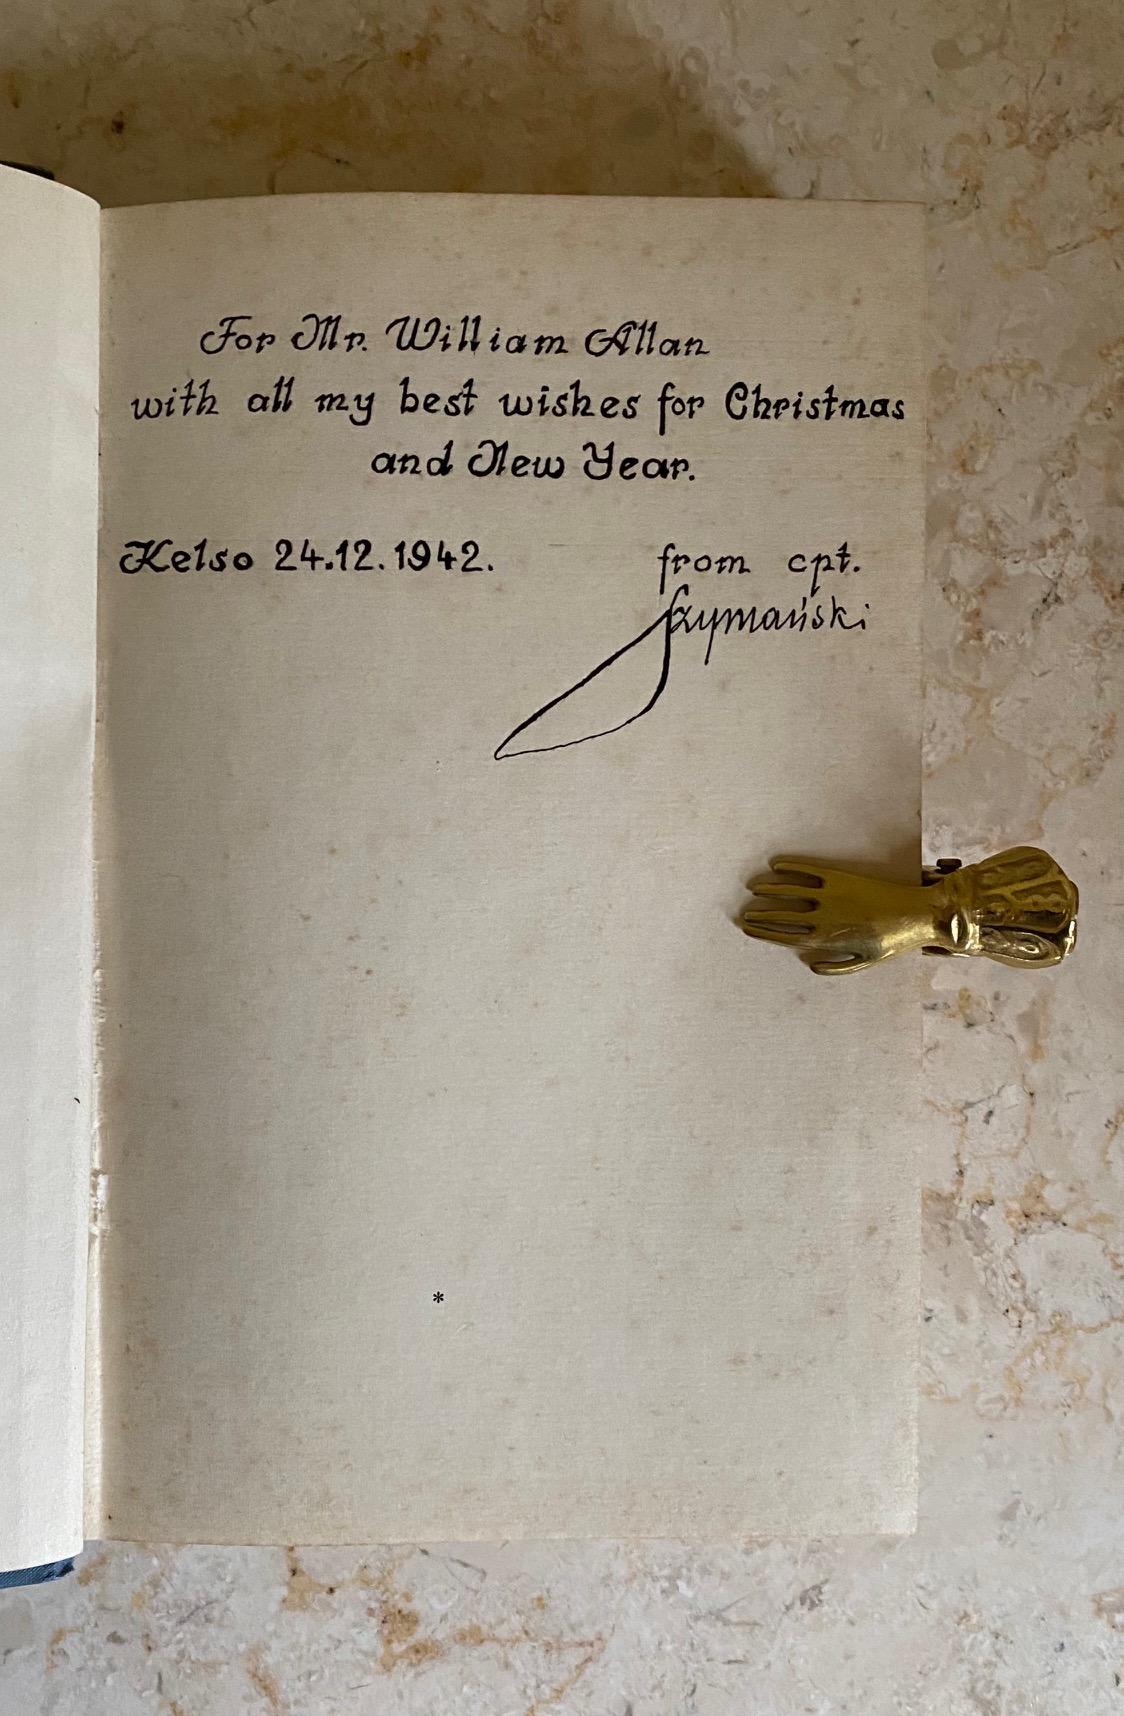 For Mr. William Allan
with all my best wishes for Christmas
and New Year.
Kelso 24.12.1942. from cpt.
Szymański
*